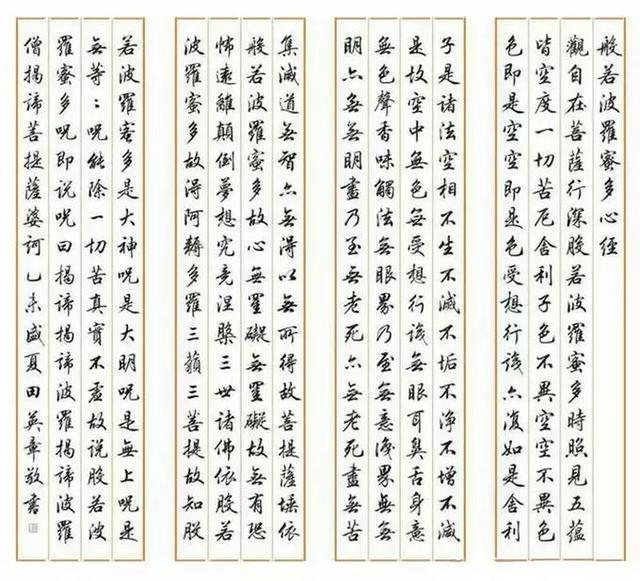 般若波羅蜜多心經
觀自在菩薩行深般若波羅蜜多時照見五蘊
皆空度一切苦厄舍利子色不異空空不異色
色即是空空即是色受想行識亦復如是舍利
子是諸法空相不生不滅不垢不淨不增不減
是故空中無色無受想行識無眼耳鼻舌身意
無色聲香味觸法無眼界乃至無意識界無無
明亦無無明盡乃至無老死亦無老死盡無苦
集滅道無智亦無得以無所得故菩提薩埵依
般若波羅蜜多故心無罣礙無罣礙故無有恐
怖遠離顛倒夢想究竟涅槃三世諸佛依般若
波羅蜜多故得阿耨多羅三藐三菩提故知般
若波羅蜜多是大神呪是大明呪是無上呪是
無等〻呪能除一切苦真實不虛故說般若波
羅蜜多呪即說呪曰揭諦揭諦波羅揭諦波羅
僧揭諦菩提薩婆訶乙未盛夏田英章敬書